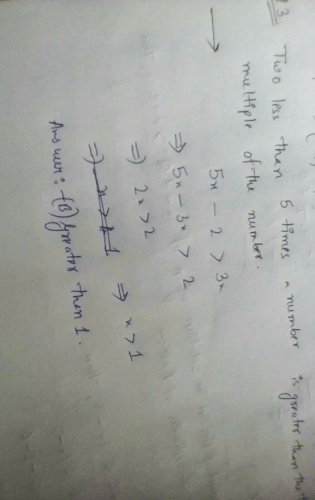 3 Two less than 5 times a number is greater than the
multiple of the number.
→ 5x - 2 > 3x
⇒ 5x - 3x > 2
⇒ 2x > 2
⇒ ⇒ x > 1
Answer: (B) greater then 1.